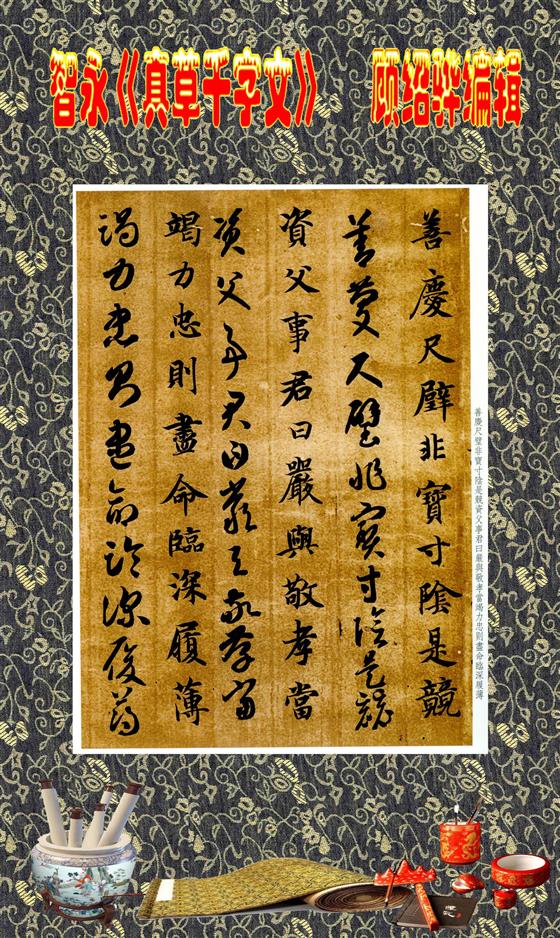 智永《真草千字文》 顾绍骅编辑
善慶尺璧非寶寸陰是競
善慶尺璧非寶寸陰是競
資父事君曰嚴與敬孝當
資父事君曰嚴與敬孝當
竭力忠則盡命臨深履薄
竭力忠則盡命臨深履薄
善慶尺璧非寶寸陰是競資父事君曰嚴與敬孝當竭力忠則盡命臨深履薄